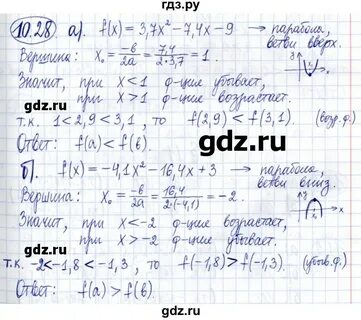 гдз.ру
10.28 а). f(x) = 3,7x² - 7,4x - 9 → парабола,
ветви вверх.
Вершина: x₀ = -b/2a = 7,4/2·3,7 = 1.
Значит, при x < 1 ф-ция убывает,
при x > 1 ф-ция возрастает.
т.к. 1 < 2,9 < 3,1, то f(2,9) < f(3,1) (возр. ф.)
Ответ: f(a) < f(b).
б). f(x) = -4,1x² - 16,4x + 3 → парабола,
ветви вниз.
Вершина: x₀ = -b/2a = 16,4/2·(-4,1) = -2.
Значит, при x < -2 ф-ция возрастает
при x > -2 ф-ция убывает.
т.к. -2 < -1,8 < -1,3, то f(-1,8) > f(-1,3). (убыв. ф.)
Ответ: f(a) > f(b).
гдз.ру